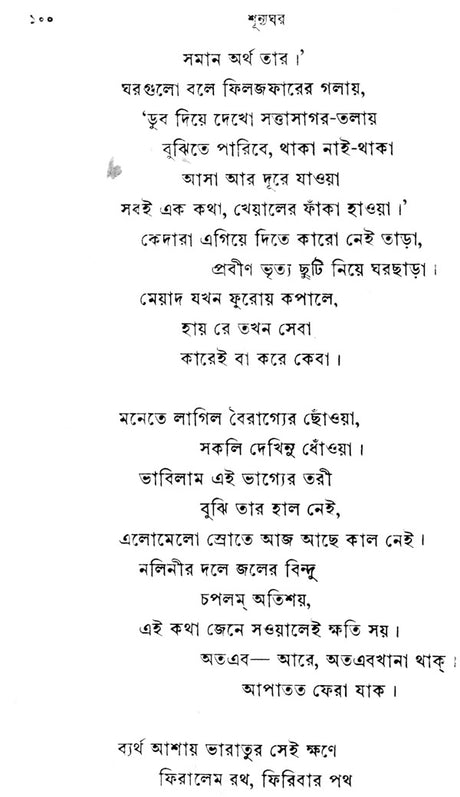 ১০০ শূন্যঘর
সমান অর্থ তার।’
ঘরগুলো বলে ফিলজফারের গলায়,
‘ডুব দিয়ে দেখো সত্তাসাগর-তলায়
বুঝিতে পারিবে, থাকা নাই-থাকা
আসা আর দূরে যাওয়া
সবই এক কথা, খেয়ালের ফাঁকা হাওয়া।’
কেদারা এগিয়ে দিতে কারো নেই তাড়া,
প্রবীণ ভৃত্য ছুটি নিয়ে ঘরছাড়া।
মেয়াদ যখন ফুরোয় কপালে,
হায় রে তখন সেবা
কারেই বা করে কেবা।
মনেতে লাগিল বৈরাগ্যের ছোঁওয়া,
সকলি দেখিনু ধোঁওয়া।
ভাবিলাম এই ভাগ্যের তরী
বুঝি তার হাল নেই,
এলোমেলো স্রোতে আজ আছে কাল নেই।
নলিনীর দলে জলের বিন্দু
চপলম্ অতিশয়,
এই কথা জেনে সওয়ালেই ক্ষতি সয়।
অতএব— আরে, অতএবখানা থাক্।
আপাতত ফেরা যাক।
ব্যর্থ আশায় ভারাতুর সেই ক্ষণে
ফিরালেম রথ, ফিরিবার পথ